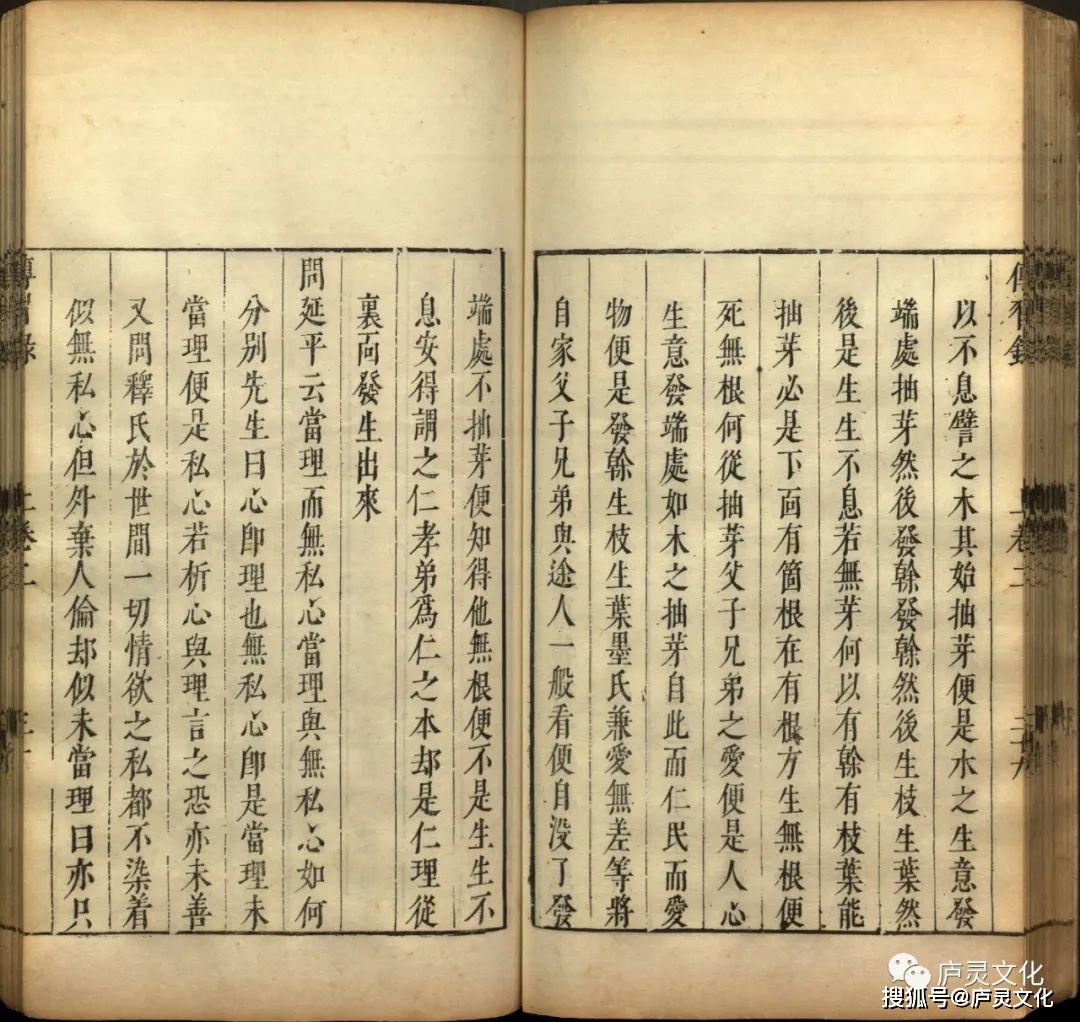 傳習錄
上卷二
二十九
以不息譬之木其始抽芽便是木之生意發
端處抽芽然後發榦發榦然後生枝生葉然
後是生生不息若無芽何以有榦有枝葉能
抽芽必是下面有箇根在有根方生無根便
死無根何從抽芽父子兄弟之愛便是人心
生意發端處如木之抽芽自此而仁民而愛
物便是發榦生枝生葉墨氏兼愛無差等將
自家父子兄弟與途人一般看便自没了發
端處不抽芽便知得他無根便不是生生不
息安得謂之仁孝弟爲仁之本却是仁理從
裏面發生出來
問延平云當理而無私心當理與無私心如何
分别先生曰心即理也無私心即是當理未
當理便是私心若析心與理言之恐亦未善
又問釋氏於世間一切情欲之私都不染着
似無私心但外棄人倫却似未當理曰亦只
傳習錄
上卷二
三十
庐灵文化
搜狐号@庐灵文化